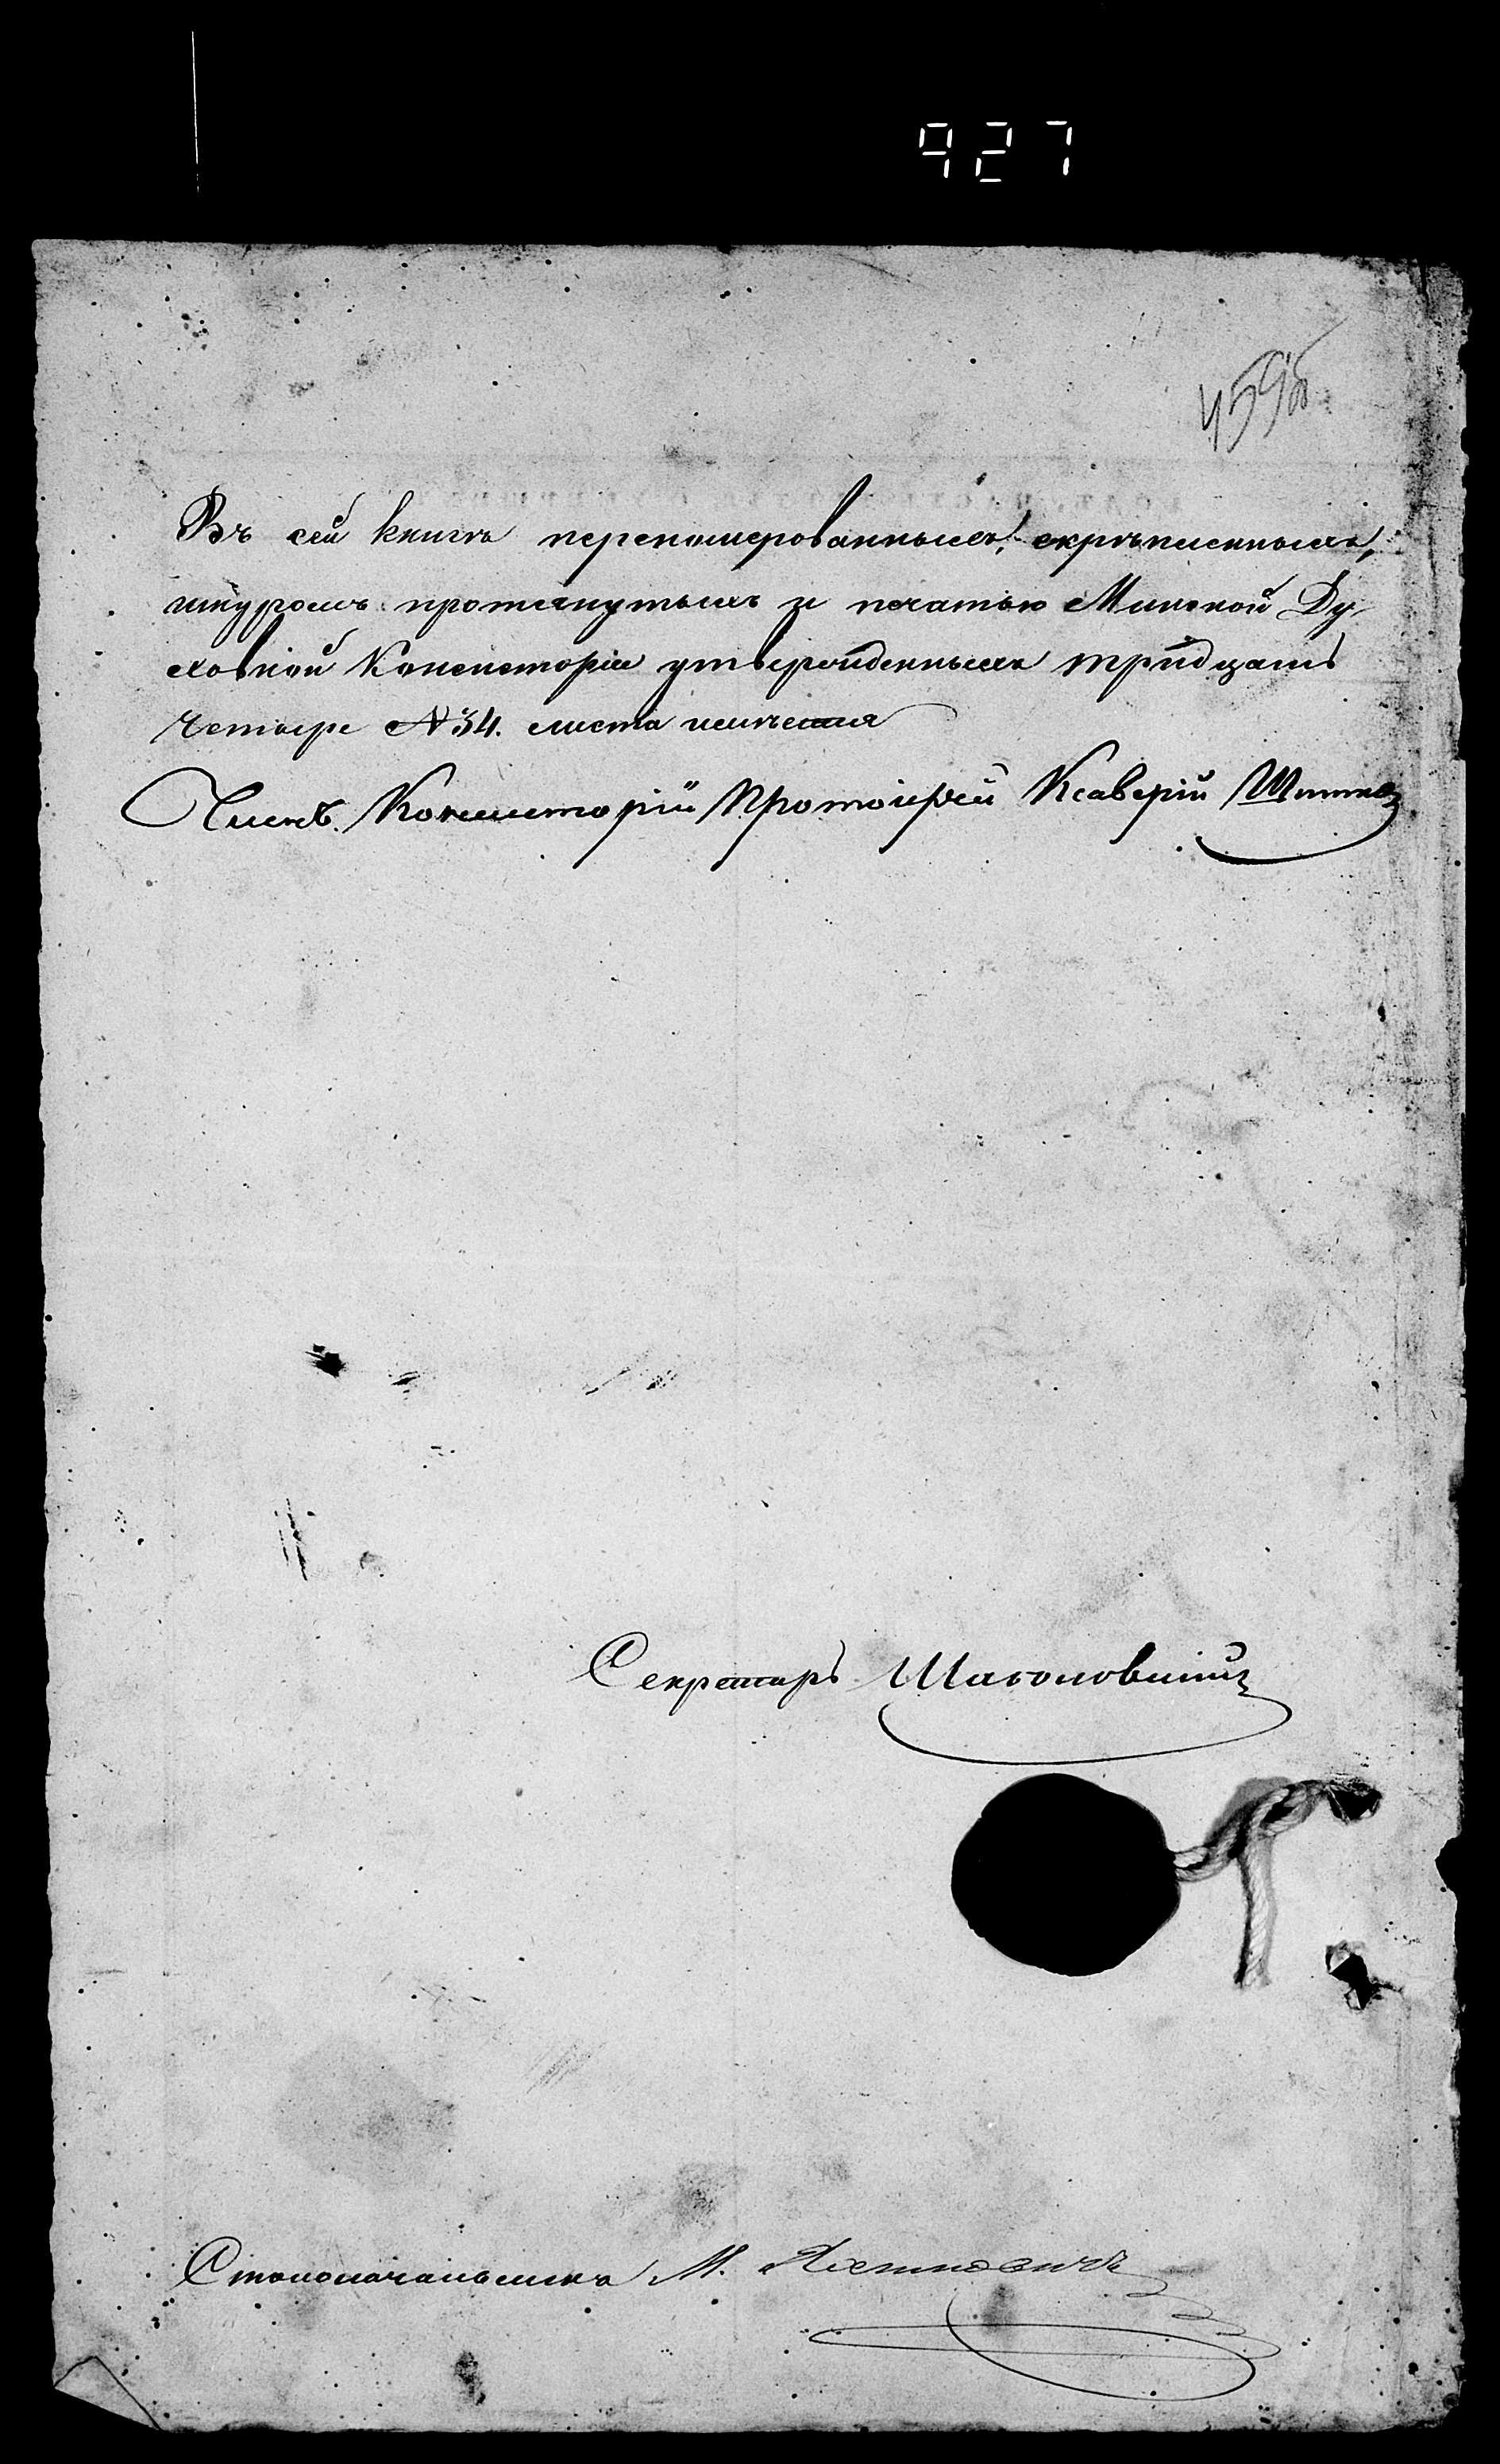 927
459об
Въ сей книгѣ перенумерованныхъ, скрѣпленныхъ,
шнуромъ протянутыхъ и печатью Минской Ду-
ховной Консисторіи утвержденныхъ тридцать
четыре №34. листа имѣется
Членъ Консисторіи Протоіерей Ксаверій
Секретарь
Столоначальникъ М.